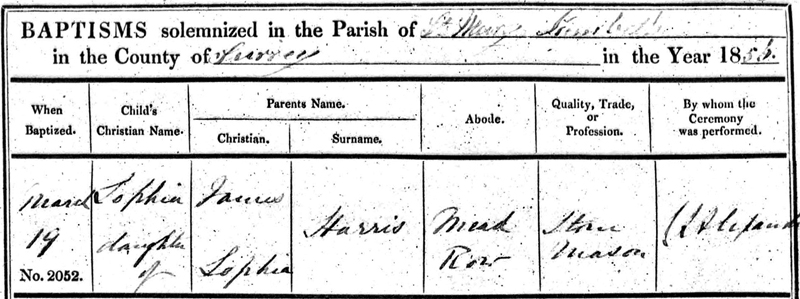 BAPTISMS solemnized in the Parish of St Mary Lambeth
in the County of Surrey in the Year 1856.
When Baptized. Child's Christian Name. Parents Name. Abode. Quality, Trade, or Profession. By whom the Ceremony was performed.
Christian. Surname.
March Sophia James
19 daughter Harris Mead Stone
of Sophia Row Mason
No. 2052.